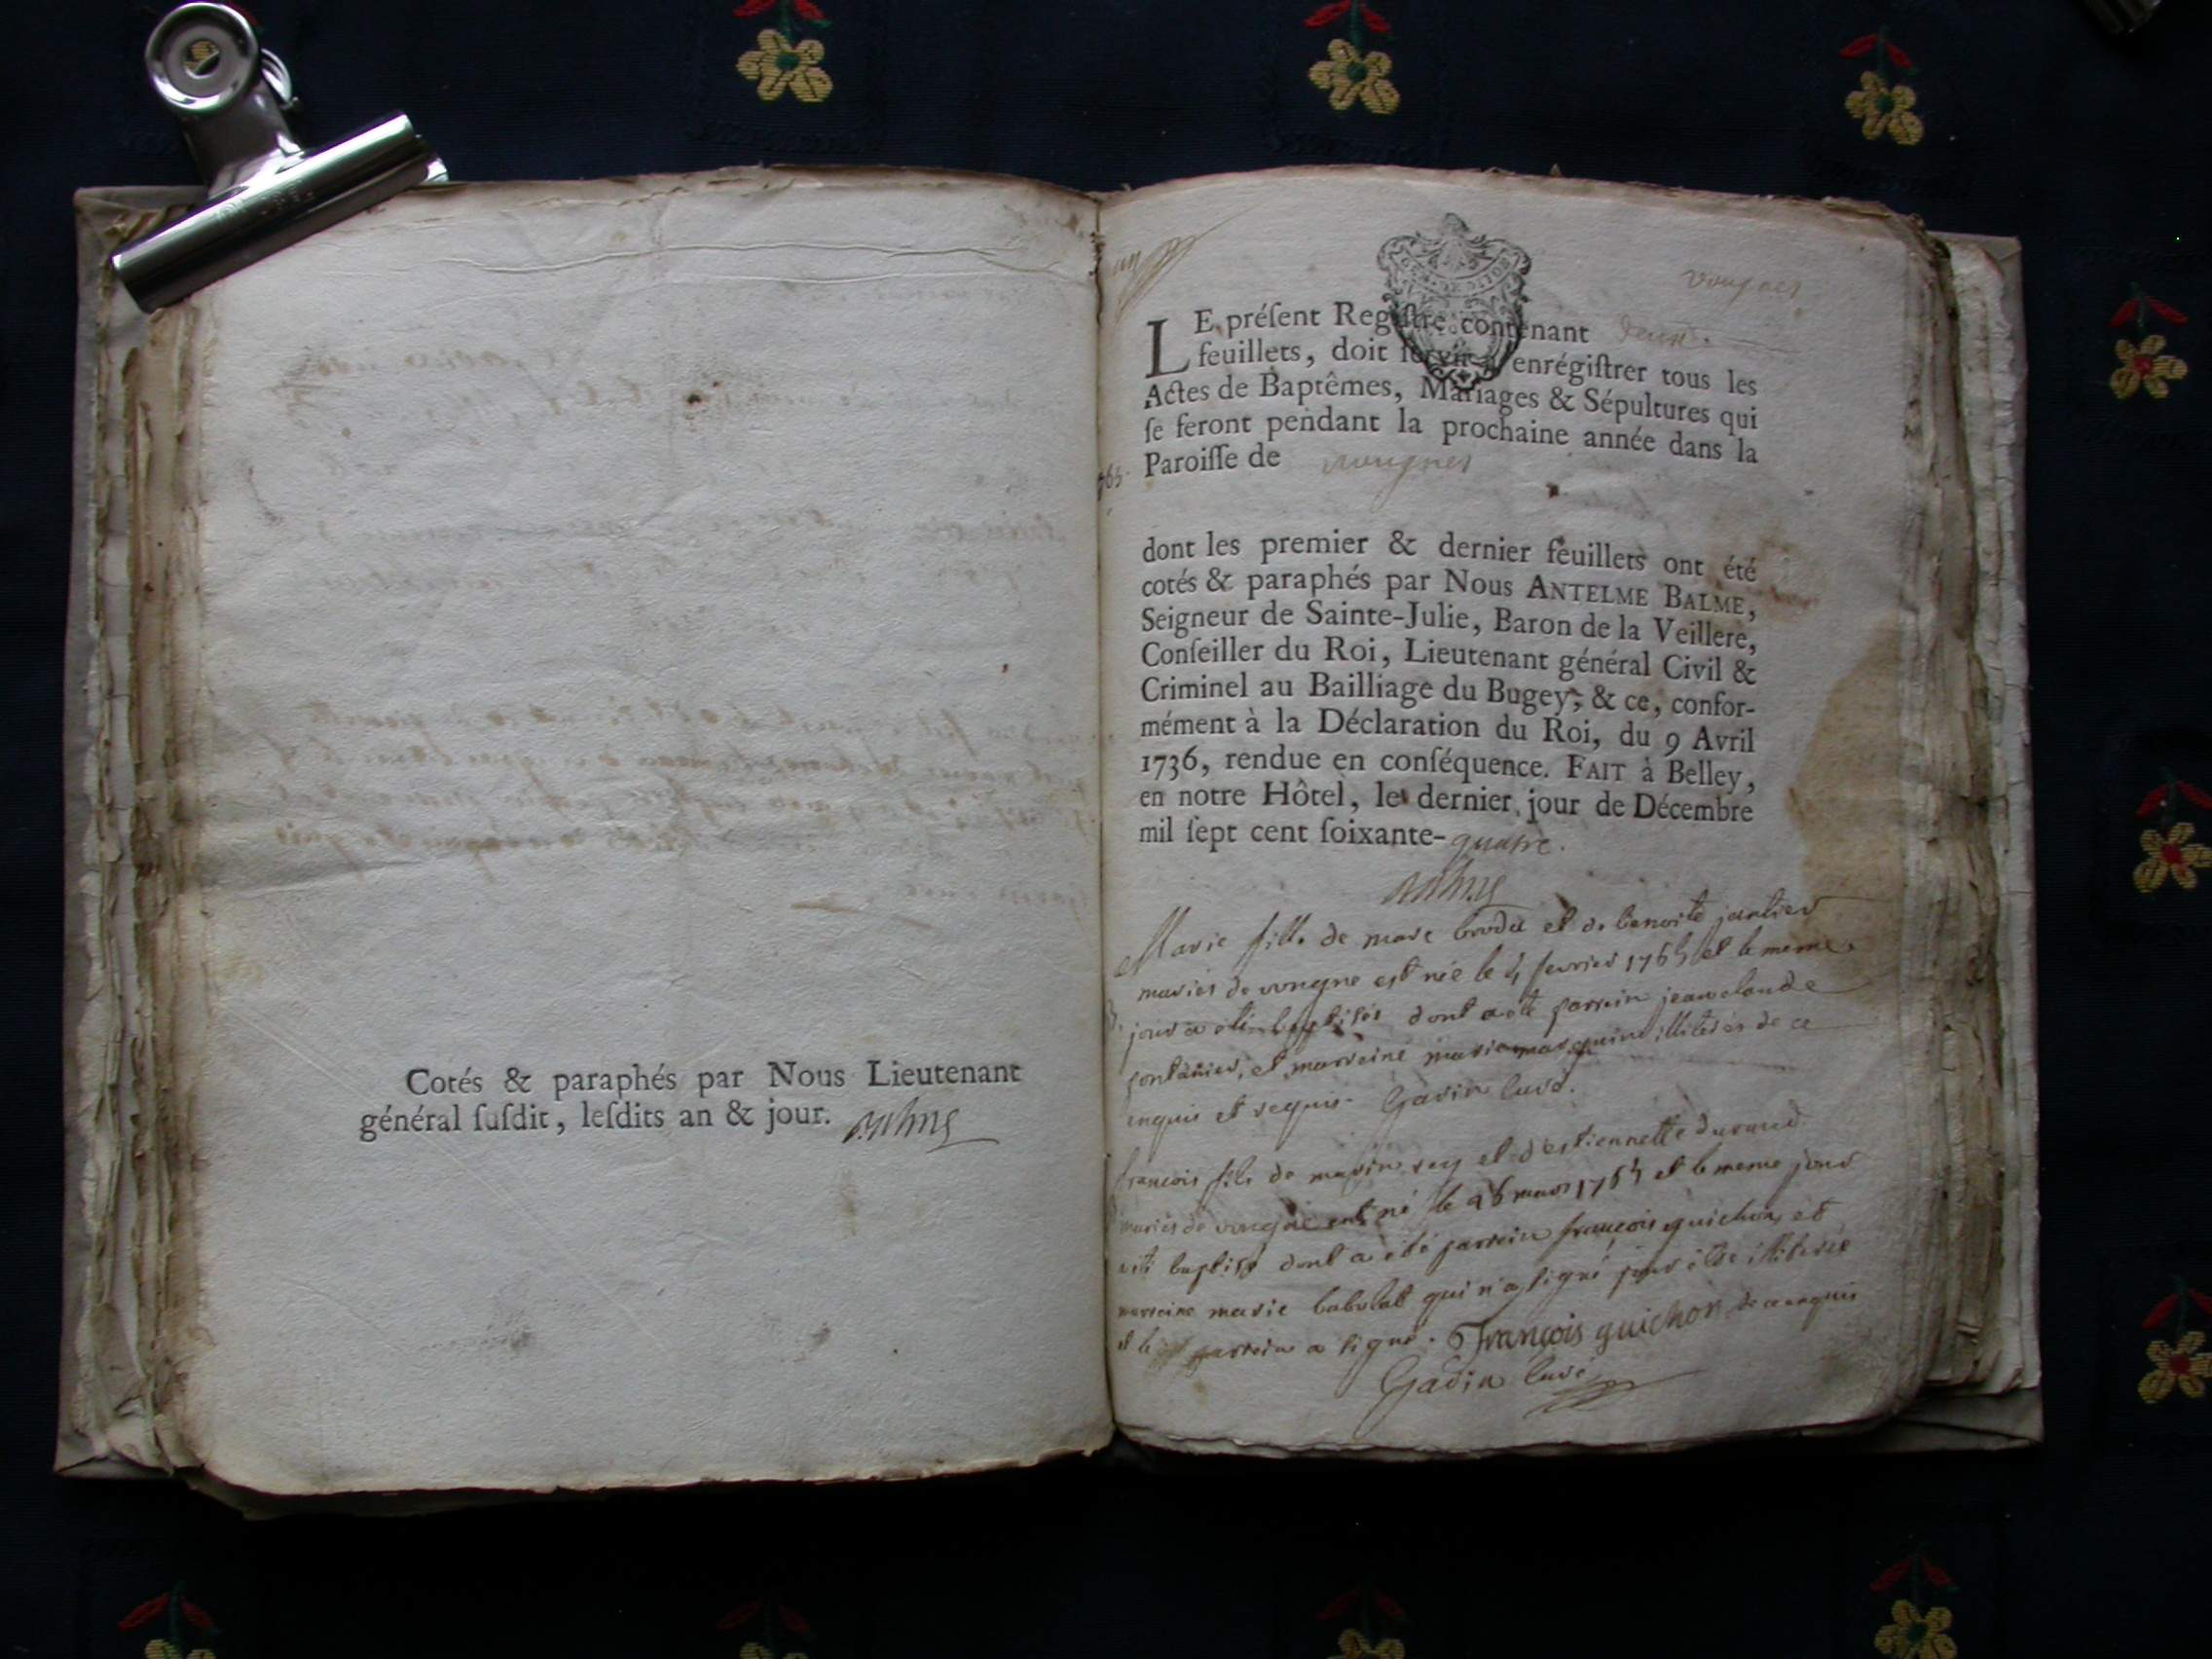 Cotés & paraphés par Nous Lieutenant
général ſuſdit, leſdits an & jour. Balme
vongnes
LE préſent Regiſtre contenant deux
feuillets, doit ſervir à enrégiſtrer tous les
Actes de Baptêmes, Mariages & Sépultures qui
ſe feront pendant la prochaine année dans la
Paroiſſe de vongnes
dont les premier & dernier feuillets ont été
cotés & paraphés par Nous ANTELME BALME,
Seigneur de Sainte-Julie, Baron de la Veillere,
Conſeiller du Roi, Lieutenant général Civil &
Criminel au Bailliage du Bugey; & ce, confor-
mément à la Déclaration du Roi, du 9 Avril
1736, rendue en conſéquence. FAIT à Belley,
en notre Hôtel, le dernier jour de Décembre
mil ſept cent ſoixante-quatre.
Balme
Marie fille de marc et de benoite
mariés de vongne est née le 4 fevrier 1765 et le meme
jour a été baptisée dont a été parrein jean claude
et marreine marie illiterés de ce
enquis et requis. Gavin curé.
francois fils de marin rey et d'estiennette durand
mariés de vongne est né le 26 mars 1765 et le meme jour
a été baptisé dont a été parrein francois guichon et
marreine marie babolat qui n'a signé pour être illiterée
et le parrein a signé. François guichon de ce enquis
Gavin curé